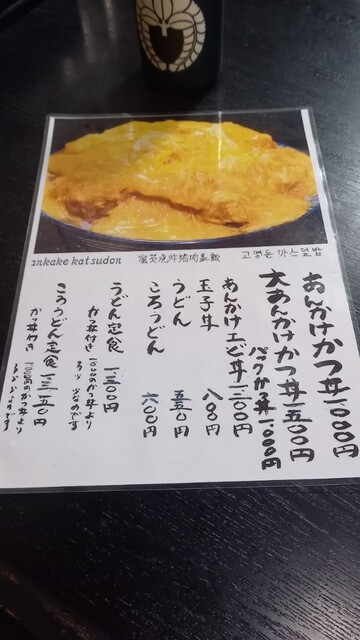 ankake katsudon
蜜芡烧炸猪肉盖飯
고명돈까스덮밥
あんかけかつ丼 一〇〇〇円
大あんかけかつ丼 一五〇〇円
パックかつ丼 一〇〇〇円
あんかけエビ丼 一三〇〇円
玉子丼 八〇〇円
うどん 五五〇円
ころうどん 六〇〇円
うどん定食 一三〇〇円
かつ丼付き 1000円のかつ丼より
少なめです
ころうどん定食 一三五〇円
かつ丼付き 1000円のかつ丼より